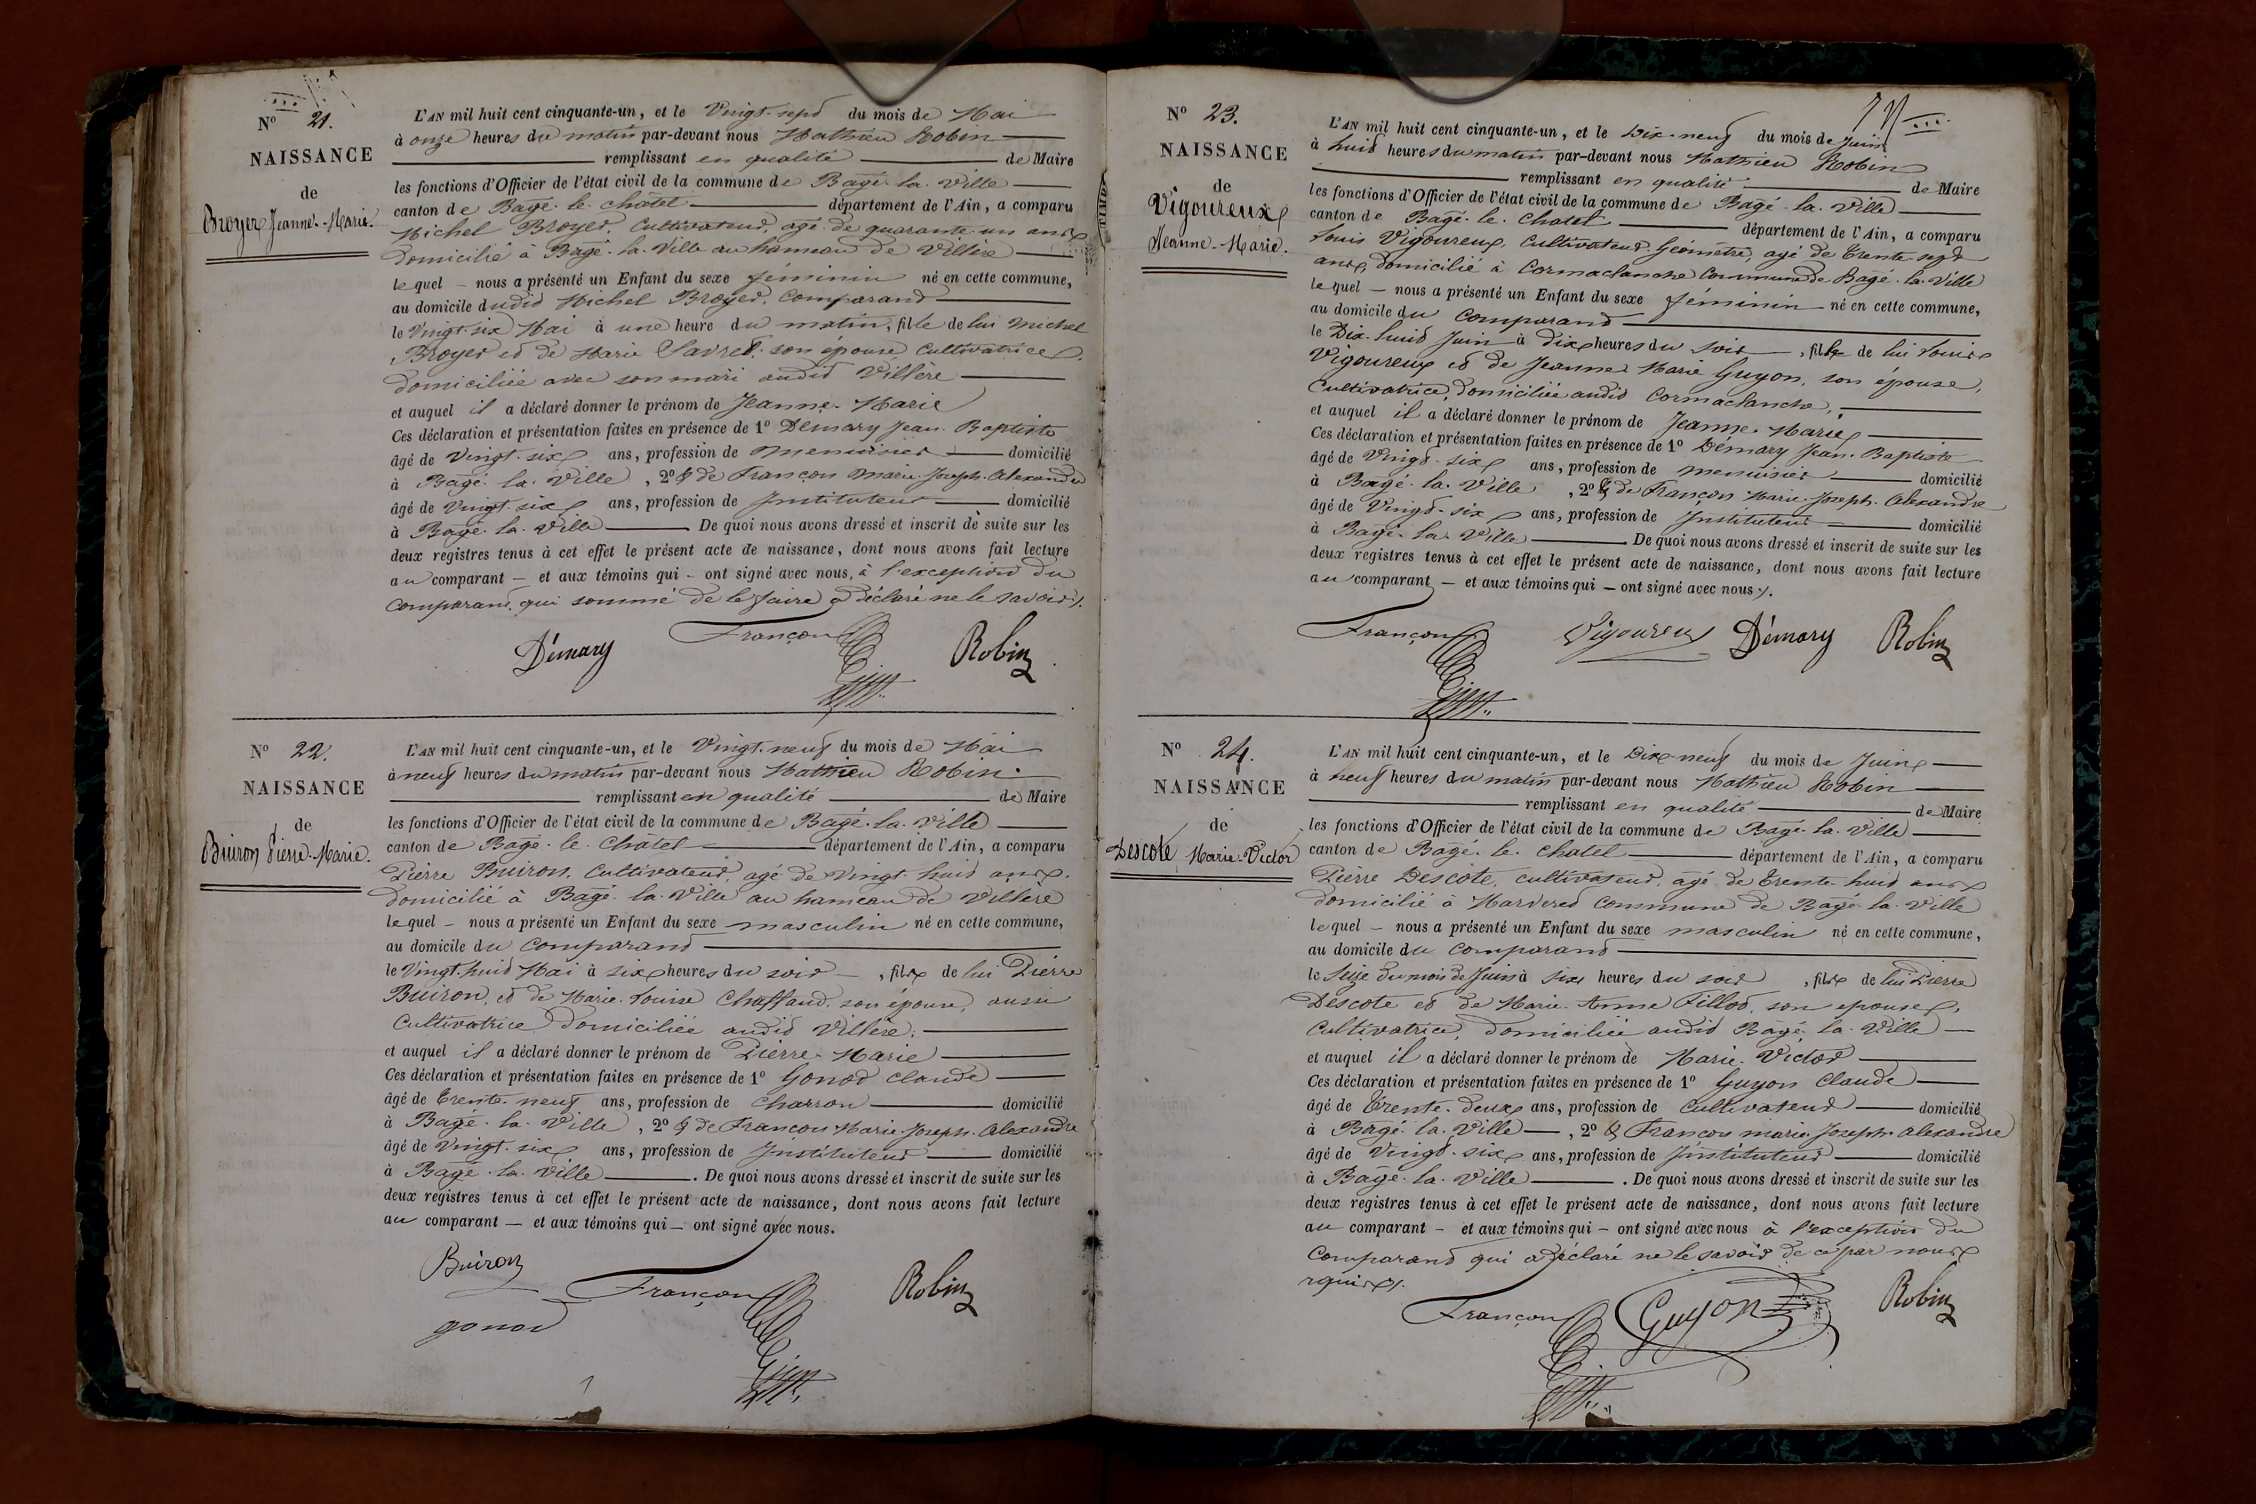 N° 21.
NAISSANCE
de
Broyer Jeanne-Marie.
L'AN mil huit cent cinquante-un, et le Vingt-sept du mois de Mai
à onze heures du matin par-devant nous Mathieu Robin
remplissant en qualité de Maire
les fonctions d'Officier de l'état civil de la commune de Bagé-la-Ville
canton de Bagé-le-châtel département de l'Ain, a comparu
Michel Broyer, Cultivateur, agé de quarante-un ans
domicilié à Bagé-la-Ville au hameau de Villère
lequel nous a présenté un Enfant du sexe féminin né en cette commune,
au domicile dudit Michel Broyer, Comparant
le Vingt-six Mai à une heure du matin, fille de lui Michel
Broyer et de Marie son épouse, Cultivatrice,
domiciliée avec son mari audit Villère
et auquel il a déclaré donner le prénom de Jeanne-Marie
Ces déclaration et présentation faites en présence de 1° Démary Jean-Baptiste
âgé de vingt-six ans, profession de menuisier domicilié
à Bagé-la-Ville, 2° & de Françon Marie-Joseph-Alexandre
âgé de vingt-six ans, profession de Instituteur domicilié
à Bagé-la-Ville. De quoi nous avons dressé et inscrit de suite sur les
deux registres tenus à cet effet le présent acte de naissance, dont nous avons fait lecture
au comparant — et aux témoins qui — ont signé avec nous, à l'exception du
comparant qui sommé de le faire a déclaré ne le savoir.
Démary Françon Robin
N° 22.
NAISSANCE
de
Buiron Pierre-Marie.
L'AN mil huit cent cinquante-un, et le Vingt-neuf du mois de Mai
à neuf heures du matin par-devant nous Mathieu Robin
remplissant en qualité de Maire
les fonctions d'Officier de l'état civil de la commune de Bagé-la-Ville
canton de Bagé-le-Châtel département de l'Ain, a comparu
Pierre Buiron, Cultivateur, agé de vingt-huit ans,
domicilié à Bagé-la-Ville au hameau de Villère
lequel — nous a présenté un Enfant du sexe masculin né en cette commune,
au domicile du Comparant
le Vingt-huit Mai à six heures du soir —, fils de lui Pierre
Buiron, et de Marie-Louise Chaffaud, son épouse, aussi
Cultivatrice domiciliée audit Villère,
et auquel il a déclaré donner le prénom de Pierre-Marie
Ces déclaration et présentation faites en présence de 1° Gonod Claude
âgé de trente-neuf ans, profession de charron domicilié
à Bagé-la-Ville, 2° & de Françon Marie-Joseph-Alexandre
âgé de Vingt-six ans, profession de Instituteur domicilié
à Bagé-la-Ville. De quoi nous avons dressé et inscrit de suite sur les
deux registres tenus à cet effet le présent acte de naissance, dont nous avons fait lecture
au comparant — et aux témoins qui — ont signé avec nous.
Buiron Françon Robin
gonod
N° 23.
NAISSANCE
de
Vigoureux
Jeanne-Marie.
L'AN mil huit cent cinquante-un, et le Dix-neuf du mois de Juin
à huit heures du matin par-devant nous Mathieu Robin
remplissant en qualité de Maire
les fonctions d'Officier de l'état civil de la commune de Bagé-la-Ville
canton de Bagé-le-Chatel département de l'Ain, a comparu
Louis Vigoureux, Cultivateur-Géomètre, agé de trente-sept
ans, domicilié à Cormaclanche Commune de Bagé-la-Ville
lequel — nous a présenté un Enfant du sexe féminin né en cette commune,
au domicile du Comparant
le Dix-huit Juin à dix heures du soir, fille de lui Louis
Vigoureux et de Jeanne Marie Guyon, son épouse,
Cultivatrice, domiciliée audit Cormaclanche,
et auquel il a déclaré donner le prénom de Jeanne-Marie
Ces déclaration et présentation faites en présence de 1° Démary Jean-Baptiste
âgé de Vingt-six ans, profession de menuisier domicilié
à Bagé-la-Ville, 2° & de Françon Marie-Joseph-Alexandre
âgé de Vingt-six ans, profession de Instituteur domicilié
à Bagé-la-Ville. De quoi nous avons dressé et inscrit de suite sur les
deux registres tenus à cet effet le présent acte de naissance, dont nous avons fait lecture
au comparant — et aux témoins qui — ont signé avec nous.
Françon Vigoureux Démary Robin
N° 24.
NAISSANCE
de
Descote Marie-Victor
L'AN mil huit cent cinquante-un, et le Dix-neuf du mois de Juin
à neuf heures du matin par-devant nous Mathieu Robin
remplissant en qualité de Maire
les fonctions d'Officier de l'état civil de la commune de Bagé-la-Ville
canton de Bagé-le-Chatel département de l'Ain, a comparu
Pierre Descote, cultivateur, âgé de trente-huit ans
domicilié à Commune de Bagé-la-Ville
lequel — nous a présenté un Enfant du sexe masculin né en cette commune,
au domicile du Comparant
le Seize du mois de Juin à six heures du soir, fils de lui Pierre
Descote et de Marie-Anne Fillod, son epouse,
Cultivatrice, domiciliée audit Bagé-la-Ville
et auquel il a déclaré donner le prénom de Marie-Victor
Ces déclaration et présentation faites en présence de 1° Guyon Claude
âgé de trente-deux ans, profession de Cultivateur domicilié
à Bagé-la-Ville, 2° & Françon marie-Joseph-Alexandre
âgé de Vingt-six ans, profession de Instituteur domicilié
à Bagé-la-Ville. De quoi nous avons dressé et inscrit de suite sur les
deux registres tenus à cet effet le présent acte de naissance, dont nous avons fait lecture
au comparant — et aux témoins qui — ont signé avec nous à l'exception du
Comparant qui a déclaré ne le savoir de ce par nous
requis.
Françon Guyon Robin